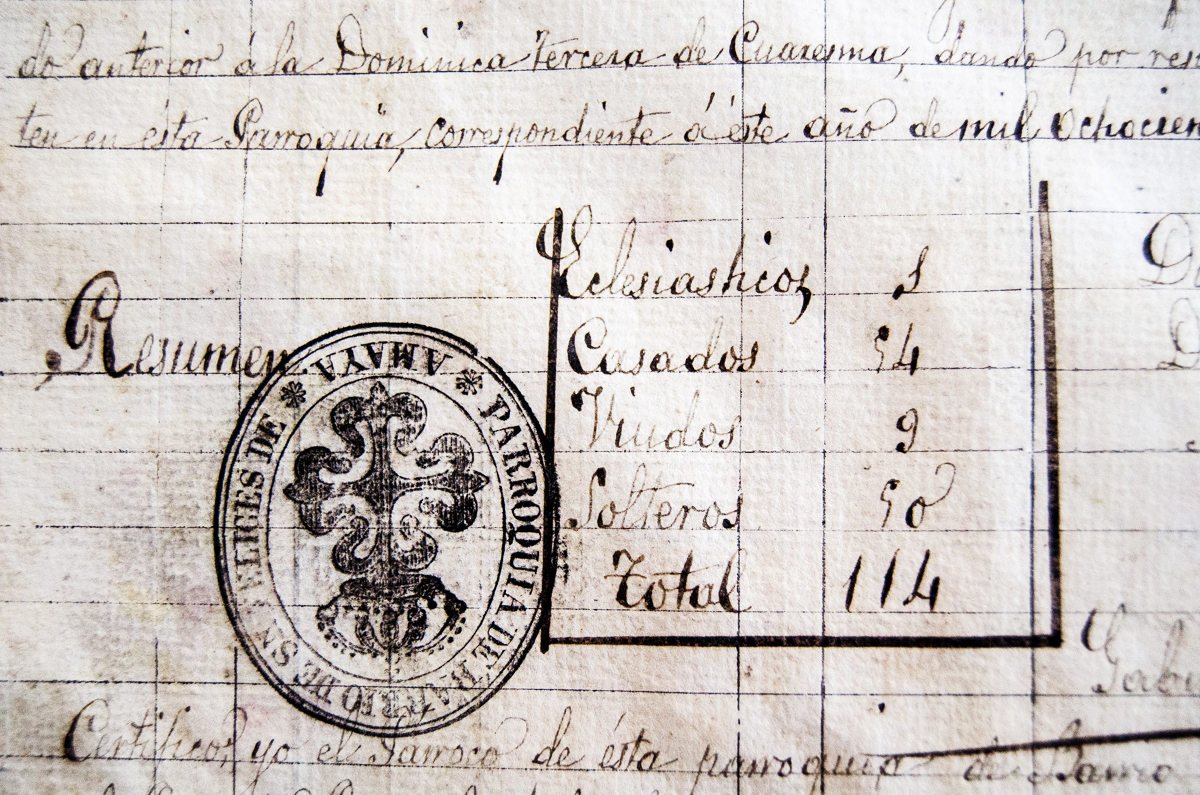 do anterior á la Dominica tercera de Cuaresma, dando por res
ten en ésta Parroquia, correspondiente á éste año de mil ochocien
Resumen
Eclesiasticos 1
Casados 54
Viudos 9
Solteros 50
Total 114
PARROQUIA DE BARRIO DE SN FELICES DE AMAYA
Certifico, yo el Parroco de ésta parroquia de Barrio